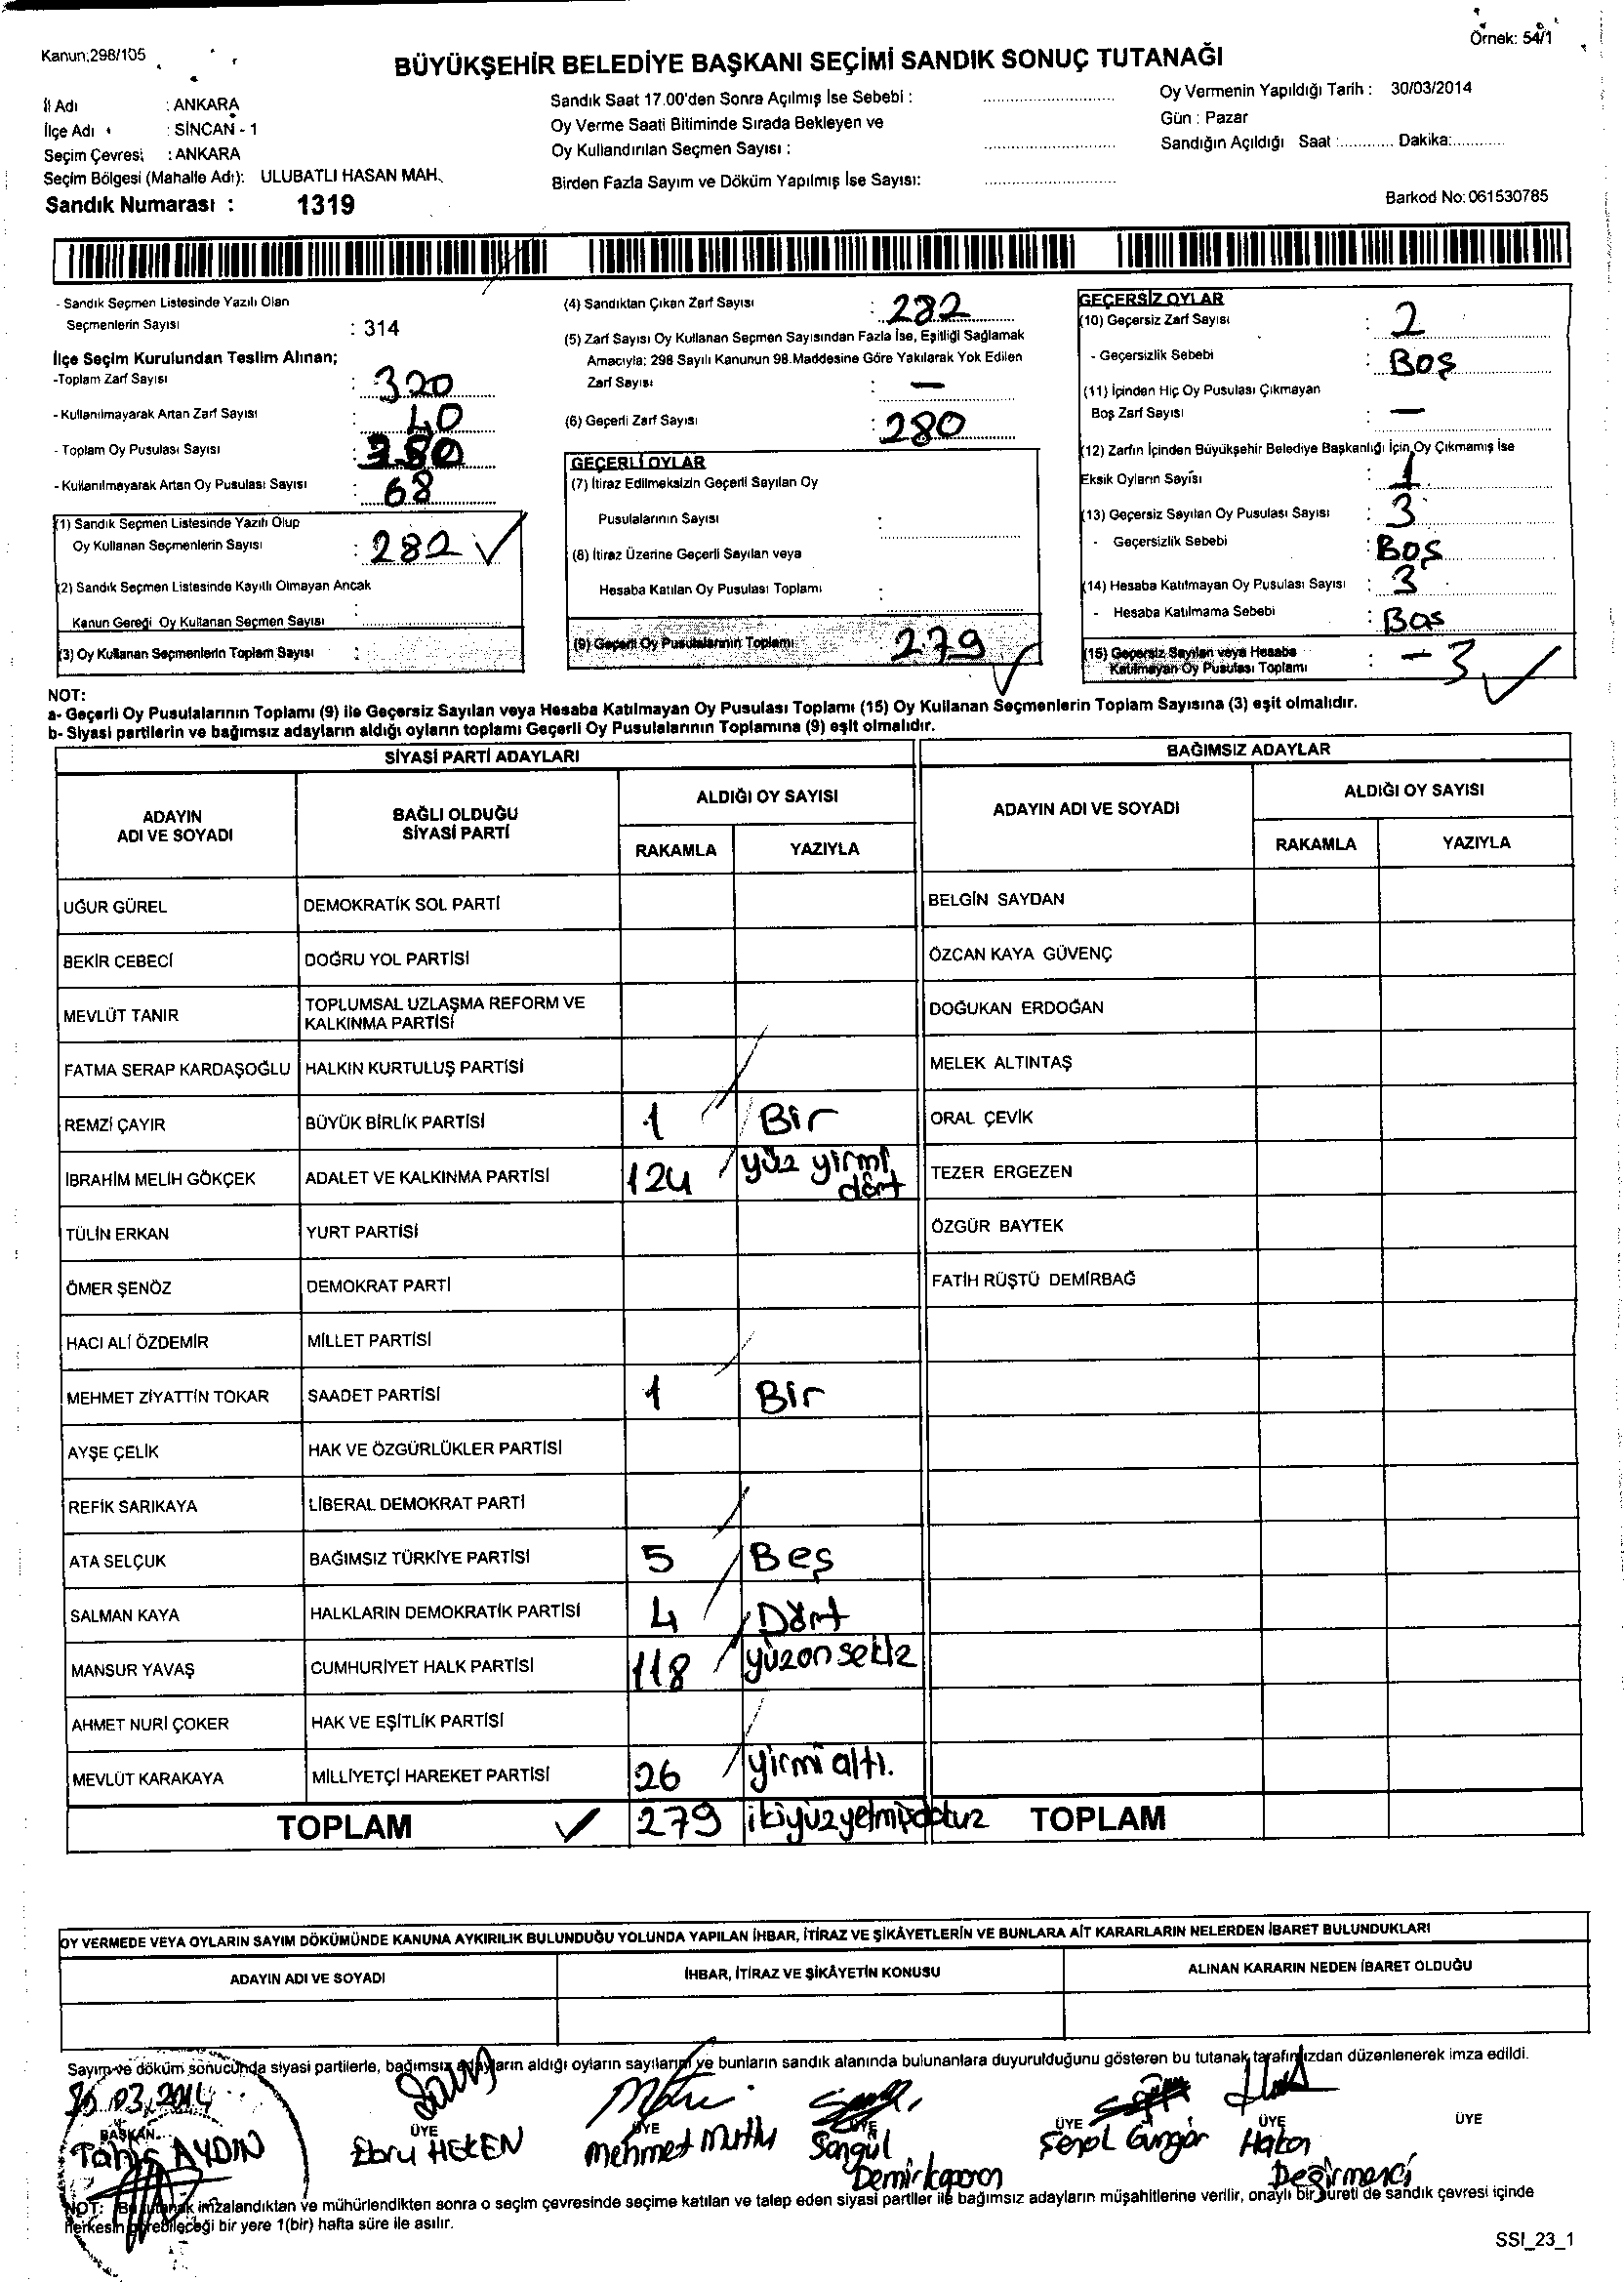 Kanun:298/105
Örnek: 54/1
BÜYÜKŞEHİR BELEDİYE BAŞKANI SEÇİMİ SANDIK SONUÇ TUTANAĞI
İl Adı : ANKARA
İlçe Adı : SİNCAN - 1
Seçim Çevresi : ANKARA
Seçim Bölgesi (Mahalle Adı): ULUBATLI HASAN MAH.
Sandık Numarası : 1319
Sandık Saat 17.00'den Sonra Açılmış İse Sebebi :
Oy Verme Saati Bitiminde Sırada Bekleyen ve
Oy Kullandırılan Seçmen Sayısı :
Birden Fazla Sayım ve Döküm Yapılmış İse Sayısı:
Oy Vermenin Yapıldığı Tarih : 30/03/2014
Gün : Pazar
Sandığın Açıldığı Saat :............ Dakika:............
Barkod No: 061530785
- Sandık Seçmen Listesinde Yazılı Olan
Seçmenlerin Sayısı : 314
İlçe Seçim Kurulundan Teslim Alınan;
-Toplam Zarf Sayısı : 320
- Kullanılmayarak Artan Zarf Sayısı : 40
- Toplam Oy Pusulası Sayısı : 350
- Kullanılmayarak Artan Oy Pusulası Sayısı : 68
(1) Sandık Seçmen Listesinde Yazılı Olup
Oy Kullanan Seçmenlerin Sayısı : 282
(2) Sandık Seçmen Listesinde Kayıtlı Olmayan Ancak
Kanun Gereği Oy Kullanan Seçmen Sayısı :
(3) Oy Kullanan Seçmenlerin Toplam Sayısı :
(4) Sandıktan Çıkan Zarf Sayısı : 282
(5) Zarf Sayısı Oy Kullanan Seçmen Sayısından Fazla İse, Eşitliği Sağlamak
Amacıyla; 298 Sayılı Kanunun 98.Maddesine Göre Yakılarak Yok Edilen
Zarf Sayısı : —
(6) Geçerli Zarf Sayısı : 280
GEÇERLİ OYLAR
(7) İtiraz Edilmeksizin Geçerli Sayılan Oy
Pusulalarının Sayısı :
(8) İtiraz Üzerine Geçerli Sayılan veya
Hesaba Katılan Oy Pusulası Toplamı :
(9) Geçerli Oy Pusulalarının Toplamı 279
GEÇERSİZ OYLAR
(10) Geçersiz Zarf Sayısı : 2
- Geçersizlik Sebebi : Boş
(11) İçinden Hiç Oy Pusulası Çıkmayan
Boş Zarf Sayısı : —
(12) Zarfın İçinden Büyükşehir Belediye Başkanlığı İçin Oy Çıkmamış İse
Eksik Oyların Sayısı : 1
(13) Geçersiz Sayılan Oy Pusulası Sayısı : 3
- Geçersizlik Sebebi : Boş
(14) Hesaba Katılmayan Oy Pusulası Sayısı : 3
- Hesaba Katılmama Sebebi : Boş
(15) Geçersiz Sayılan veya Hesaba
Katılmayan Oy Pusulası Toplamı : - 3
NOT:
a- Geçerli Oy Pusulalarının Toplamı (9) ile Geçersiz Sayılan veya Hesaba Katılmayan Oy Pusulası Toplamı (15) Oy Kullanan Seçmenlerin Toplam Sayısına (3) eşit olmalıdır.
b- Siyasi partilerin ve bağımsız adayların aldığı oyların toplamı Geçerli Oy Pusulalarının Toplamına (9) eşit olmalıdır.
SİYASİ PARTİ ADAYLARI BAĞIMSIZ ADAYLAR
ADAYIN ADI VE SOYADI BAĞLI OLDUĞU SİYASİ PARTİ ALDIĞI OY SAYISI ADAYIN ADI VE SOYADI ALDIĞI OY SAYISI
RAKAMLA YAZIYLA RAKAMLA YAZIYLA
UĞUR GÜREL DEMOKRATİK SOL PARTİ BELGİN SAYDAN
BEKİR CEBECİ DOĞRU YOL PARTİSİ ÖZCAN KAYA GÜVENÇ
MEVLÜT TANIR TOPLUMSAL UZLAŞMA REFORM VE KALKINMA PARTİSİ DOĞUKAN ERDOĞAN
FATMA SERAP KARDAŞOĞLU HALKIN KURTULUŞ PARTİSİ MELEK ALTINTAŞ
REMZİ ÇAYIR BÜYÜK BİRLİK PARTİSİ 1 Bir ORAL ÇEVİK
İBRAHİM MELİH GÖKÇEK ADALET VE KALKINMA PARTİSİ 124 yüz yirmi dört TEZER ERGEZEN
TÜLİN ERKAN YURT PARTİSİ ÖZGÜR BAYTEK
ÖMER ŞENÖZ DEMOKRAT PARTİ FATİH RÜŞTÜ DEMİRBAĞ
HACI ALİ ÖZDEMİR MİLLET PARTİSİ
MEHMET ZİYATTİN TOKAR SAADET PARTİSİ 1 Bir
AYŞE ÇELİK HAK VE ÖZGÜRLÜKLER PARTİSİ
REFİK SARIKAYA LİBERAL DEMOKRAT PARTİ
ATA SELÇUK BAĞIMSIZ TÜRKİYE PARTİSİ 5 Beş
SALMAN KAYA HALKLARIN DEMOKRATİK PARTİSİ 4 Dört
MANSUR YAVAŞ CUMHURİYET HALK PARTİSİ 118 yüzonsekiz
AHMET NURİ ÇOKER HAK VE EŞİTLİK PARTİSİ
MEVLÜT KARAKAYA MİLLİYETÇİ HAREKET PARTİSİ 26 yirmi altı.
TOPLAM 279 ikiyüzyetmişdokuz TOPLAM
OY VERMEDE VEYA OYLARIN SAYIM DÖKÜMÜNDE KANUNA AYKIRILIK BULUNDUĞU YOLUNDA YAPILAN İHBAR, İTİRAZ VE ŞİKÂYETLERİN VE BUNLARA AİT KARARLARIN NELERDEN İBARET BULUNDUKLARI
ADAYIN ADI VE SOYADI İHBAR, İTİRAZ VE ŞİKÂYETİN KONUSU ALINAN KARARIN NEDEN İBARET OLDUĞU
Sayım ve döküm sonucunda siyasi partilerle, bağımsız adayların aldığı oyların sayılarını ve bunların sandık alanında bulunanlara duyurulduğunu gösteren bu tutanak tarafımızdan düzenlenerek imza edildi.
30.03.2014
BAŞKAN ÜYE ÜYE ÜYE ÜYE ÜYE ÜYE
AYDIN Ebru HEKEN Mehmet Mutlu Songül Demirkaporon Şenol Güngör Hakan Değirmenci
NOT: Bu tutanak imzalandıktan ve mühürlendikten sonra o seçim çevresinde seçime katılan ve talep eden siyasi partiler ile bağımsız adayların müşahitlerine verilir, onaylı bir sureti de sandık çevresi içinde
herkesin görebileceği bir yere 1(bir) hafta süre ile asılır.
SSI_23_1